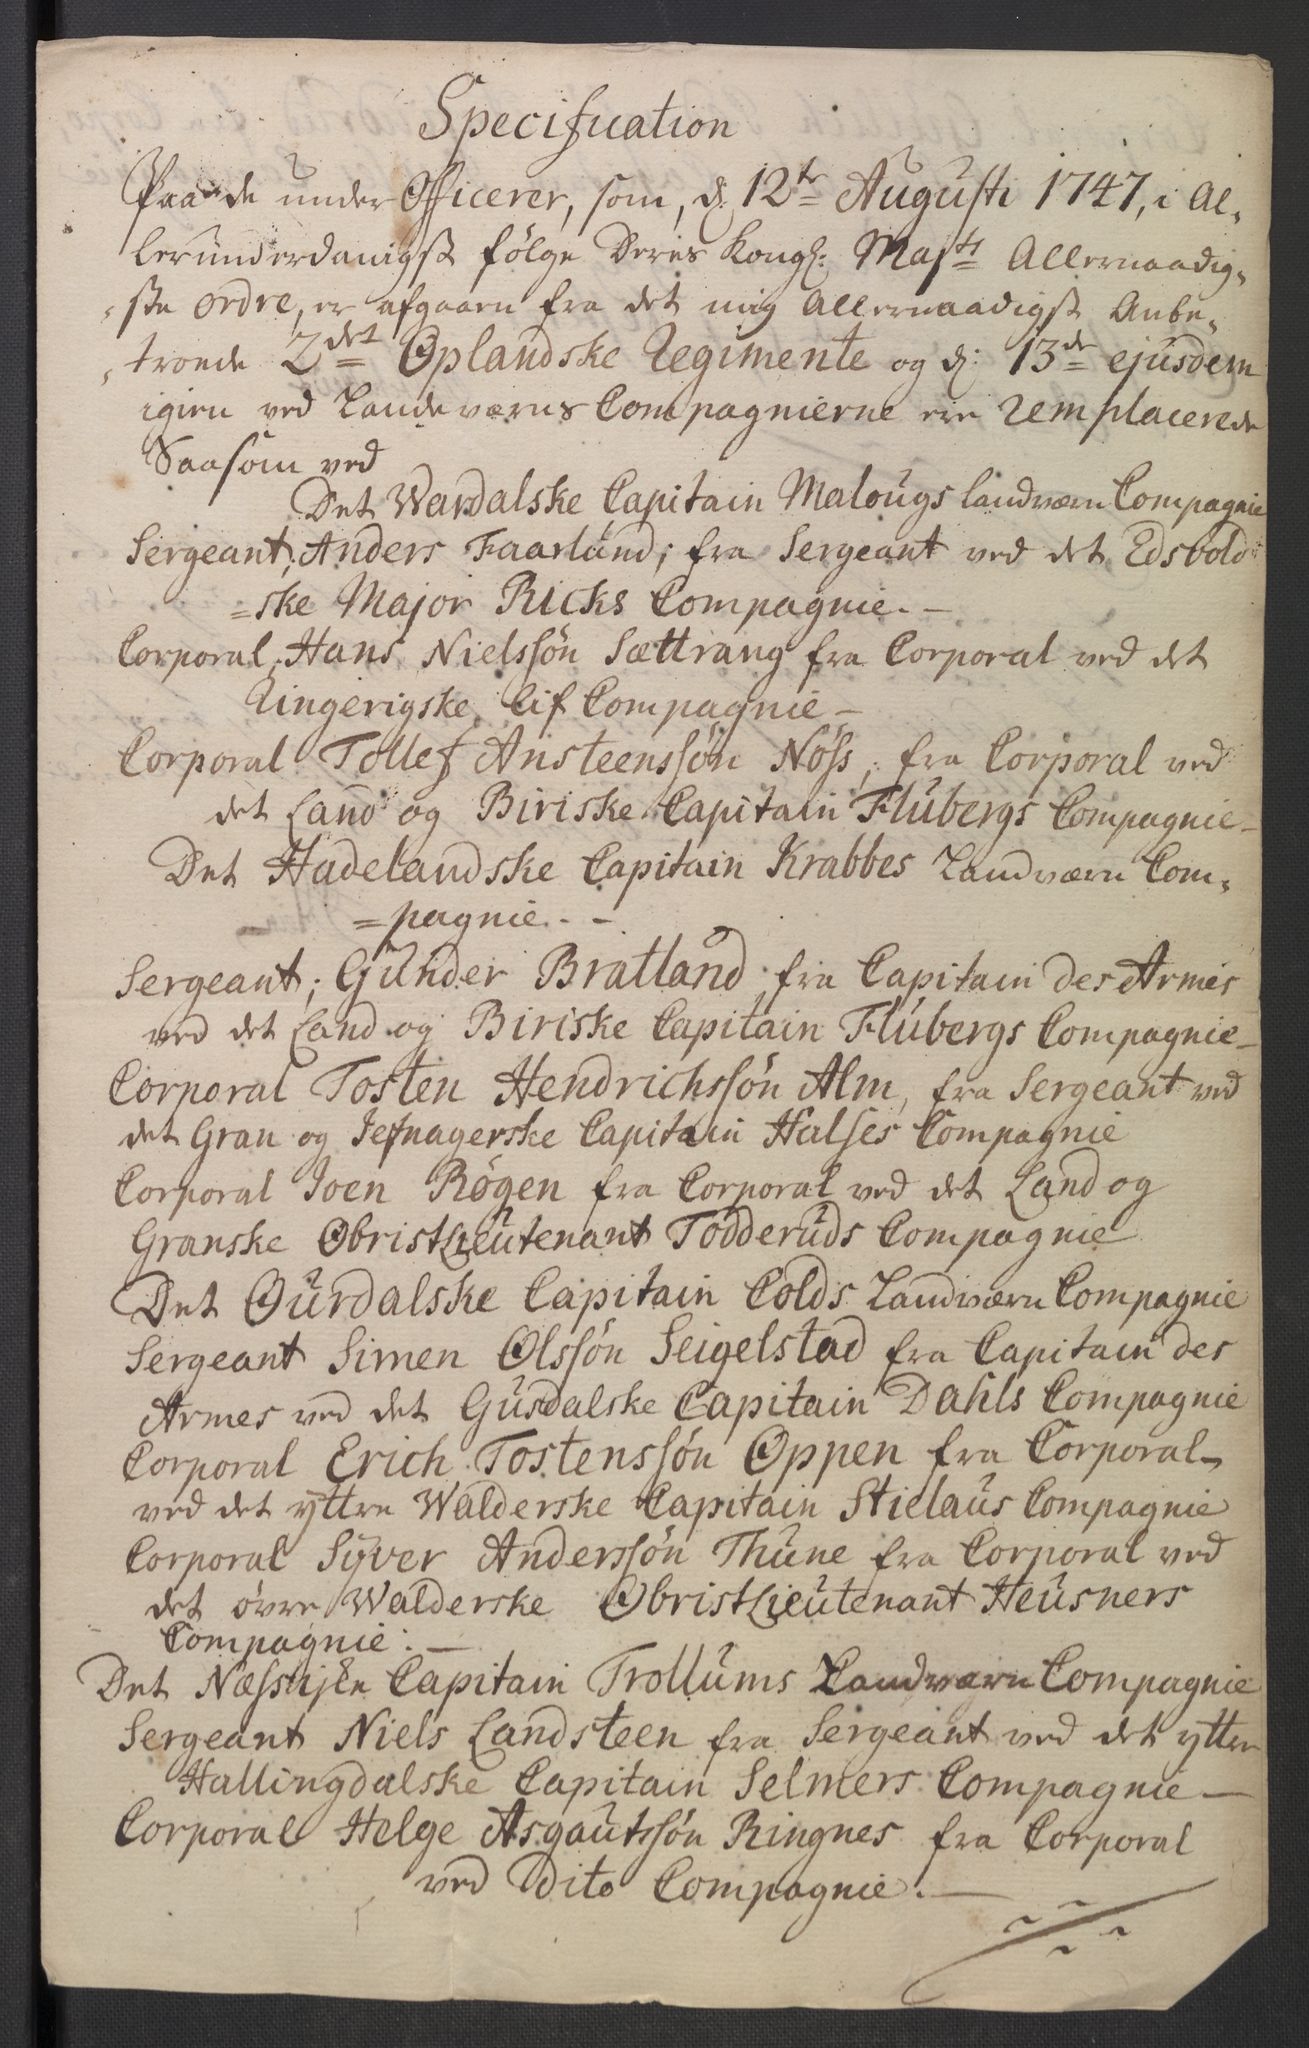 Specification
Paa de under Officerer, som, d: 12te Augusti 1747, i Al,
lerunderdanigst følge Deres Kongl: Majts Allernaadig,
,ste Ordre, er afgaaen fra det mig Allernaadigst Anbe,
,troede 2det Oplandske Regimente og d: 13de ejusdem
igien ved Landeværns Compagnierne ere remplacerede
Saasom ved
Det Wardalske Capitain Malougs landværn Compagnie
Sergeant, Anders Faarlund; fra Sergeant ved det Edsvold
=ske Major Ricks Compagnie.-
Corporal, Hans Nielssøn Sættrang fra Corporal ved det
Ringerigske Lif Compagnie-
Corporal Tollef Ansteenssøn Nøss, fra Corporal ved
det Land og Biriske Capitain Flubergs Compagnie-
Det Hadelandske Capitain Krabbes Landværn Com,
=pagnie.-
Sergeant; Gunder Bratland, fra Capitain des Armes
ved det Land og Biriske Capitain Flubergs Compagnie-
Corporal Tosten Hendrichssøn Alm, fra Sergeant ved
det Gran og Jefnagerske Capitain Halses Compagnie
Corporal Joen Røgen fra Corporal ved det Land og
Granske ObristLieutenant Todderuds Compagnie
Det Ourdalske Capitain Colds Landværn Compagnie
Sergeant Simen Olssøn Seigelstad fra Capitain des
Armes ved det Gusdalske Capitain Dahls Compagnie
Corporal Erich Tostenssøn Oppen fra Corporal-
ved det yttre Walderske Capitain Stielaus Compagnie
Corporal Syver Anderssøn Thune fra Corporal ved
det øvre Walderske ObristLieutenant Heusners
Compagnie:-
Det Næssiske Capitain Trollums Landværn Compagnie
Sergeant Niels Landsteen fra Sergeant ved det yttre
Hallingdalske Capitain Selmers Compagnie-
Corporal Helge Asgautssøn Ringnes fra Corporal
ved Dito Compagnie.-